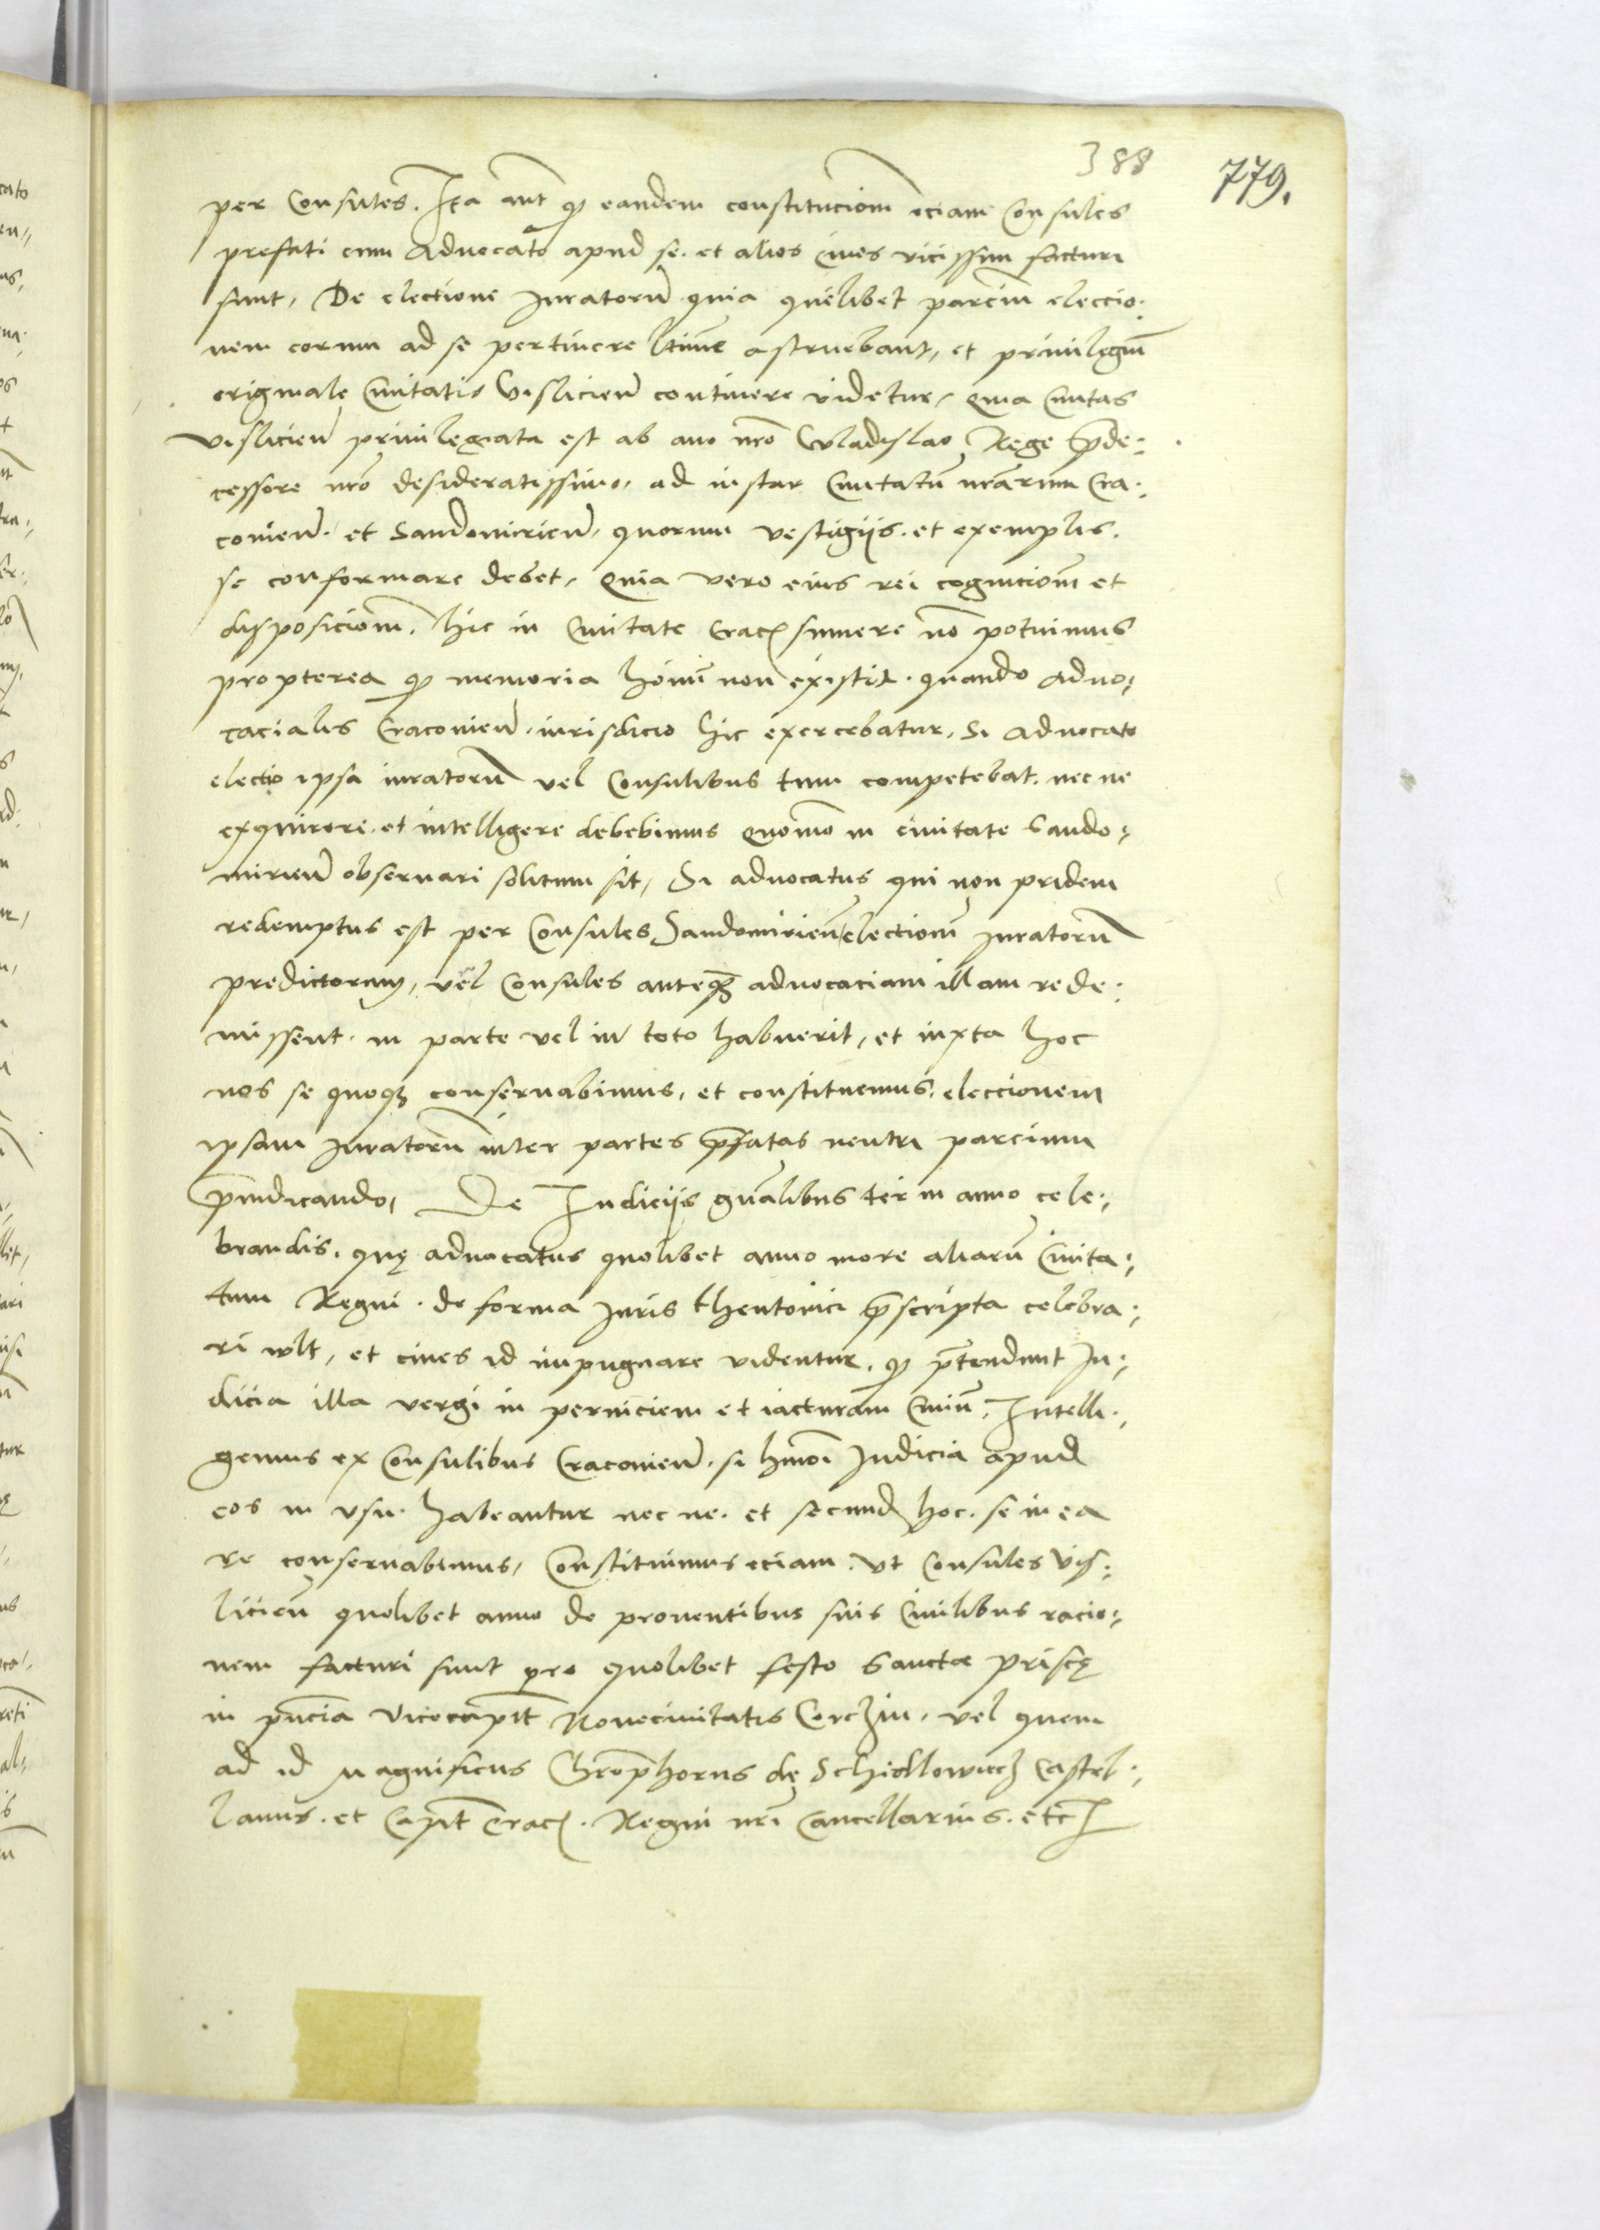 388
779.
per Consules. Ita aut̄ qꝫ eandem constitucionē eciam Consules
prefati cum Advocato apud se. et alios cives vicissim facturi
sunt, De electione Iuratorū quia quelibet parciū eleccio:
nem eorum ad se pertinere ltīme astruebant, et privilegiū
originale Civitatis Vislicien̄ continere videtur, Quia Civitas
Vislicien̄ privilegiata est ab avo nr̄o Wladislao Rege p̄de:
cessore nr̄o desideratissimo, ad instar Civitatū nr̄arum Cra:
covien̄. et Sandomirien̄, quorum vestigijs. et exemplis.
se conformare debet, Quia vero eius rei cognicionē et
disposicionē, hic in Civitate Crac̄ sumere nō potuimus
propterea qꝫ memoria hōinū non existit. quando advo:
cacialis Cracovien̄. iurisdicio hic exercebatur. Si Advocato
electio ipsa iuratorū vel Consulibus tum competebat. nec ne
exquirere. et intelligere debebimus quōmō in civitate Sando:
mirien̄ observari solitum sit, Si advocatus qui non pridem
redemptus est per Consules Sandomirien̄ electionē Iuratorū
predictorum, vel Consules anteqꝫ advocaciam illam rede:
missent. in parte vel in toto habuerit, et iuxta hoc
nos se quoqꝫ conservabimus, et constituemus. eleccionem
ipsam Iuratorū inter partes p̄fatas neutri parcium
p̄iudicando, De Iudicijs gn̄alibus ter in anno cele:
brandis. quę advocatus quolibet anno more aliarū Civita:
tum Regni. de forma Iuris thentonici p̄scripta celebra:
ri wlt, et cives id impugnare videntur. qꝫ p̄tendunt Iu:
dicia illa vergi in perniciem et iacturam Civiū, Intelli:
gemus ex Consulibus Cracovien̄. si hm̄oi Iudicia apud
eos in usu. habeantur nec ne. et secund̄ hoc. se in ea
re conservabimus, Constituimus eciam. ut Consules Vis:
licien̄ quolibet anno de proventibus suis Civilibus racio:
nem facturi sunt pro quolibet festo Sanctæ Priscę
in p̄ncia Vicecapit̄ Novecivitatis Corczin, vel quem
ad id Magnificus Chr̄ophorus de Schidlowiecz Castel:
lanus. et Capit̄ Crac̄. Regni nr̄i Cancellarius. etc̄